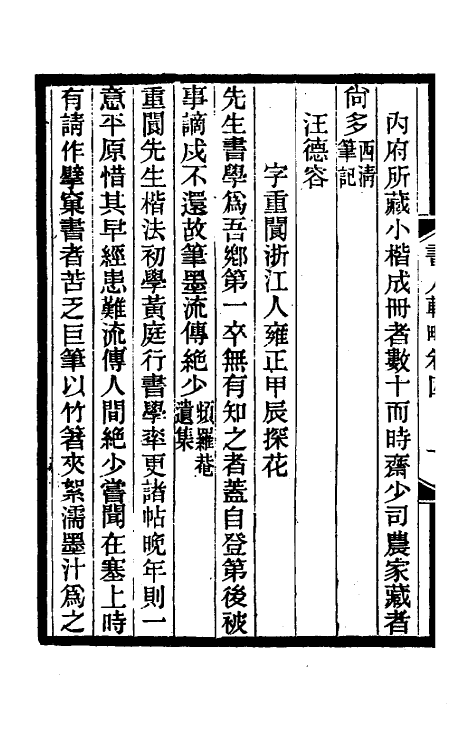 內府所藏小楷成冊者數十而時齋少司農家藏者
尙多西淸筆記
汪德容
字重閬浙江人雍正甲辰探花
先生書學爲吾鄕第一卒無有知之者蓋自登第後被
事謫戍不還故筆墨流傳絕少頻羅菴遺集
重閬先生楷法初學黃庭行書學率更諸帖晚年則一
意平原惜其早經患難流傳人間絕少嘗聞在塞上時
有請作擘窠書者苦乏巨筆以竹箸夾絮濡墨汁爲之
書人輯略卷四